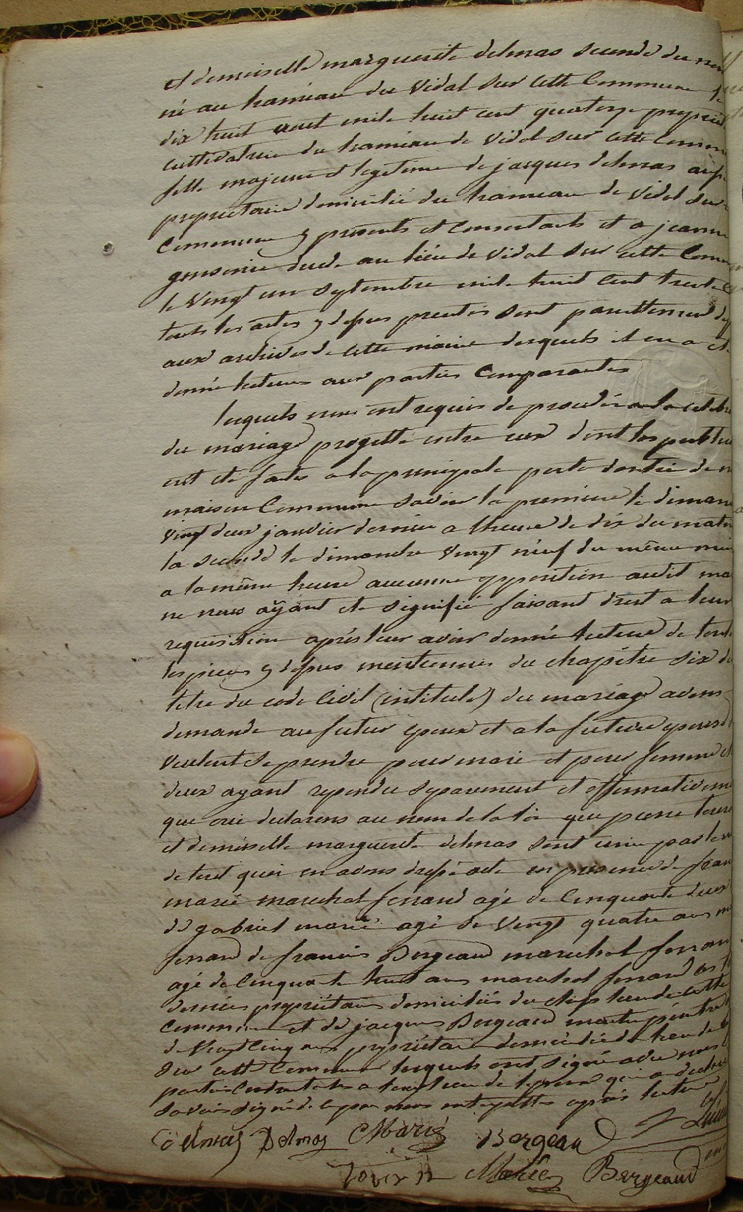 et demoiselle marguerite delmas seconde du nom
né au hameau du vidal sur cette Commune le
dix huit aout mile huit cent quatorze
du hameau de vidal sur cette Commune
fille majeure et legitime de jacques delmas aussi
proprietaire domicilié du hameau de vidal sur
Commune y presents et Consentants et a jeanne
au lieu de vidal sur cette Commune
le vingt un septembre mile huit cent trente
touts les actes y desus
aux archives de cette mairie desquels il en a été
donné lecture aux parties Comparantes
lesquels nous ont requis de proceder a la celebra
du mariage progetté entre eux dont les publica
ont été faites a la principale porte d'entrée de notre
maison Commune savoir la premiere le dimanche
vingt deux janvier dernier a lheure de dix du matin
la seconde le dimanche vingt neuf du même mois
a la même heure aucunne opposition audit mariage
ne nous ayant été signifié faisant droit a leur
requisition après leur avoir donné lecture de toutes
les pieces y desus mentionnées du chapitre six du
titre du code Civil (intitulé) du mariage avons
demandé au futur epoux et a la future epouse
veulent se prendre pour mari et pour femme
deux ayant repondu separement et affirmativement
que oui declarons au nom de la loi que pierre
et demoiselle marguerite delmas sont unis par le
de tout quoi en avons dressé acte en presence de
marié marechal ferrand agé de Cinquante deux
de gabriel marié agé de vingt quatre ans
ferrand de francois Bergeaud marechal ferrand
agé de Cinquante huit ans marechal ferrand
derniés proprietaires domiciliés du chefs lieu de cette
Commune et de jacques Bergeaud
de vingt Cinq ans proprietaire domicilié du lieu de
sur cette Commune lesquels ont signé avec nous
partie Contractante
savoir signé de ce par nous après lecture
Delmas Marié Bergeau
Marié Bergeaud